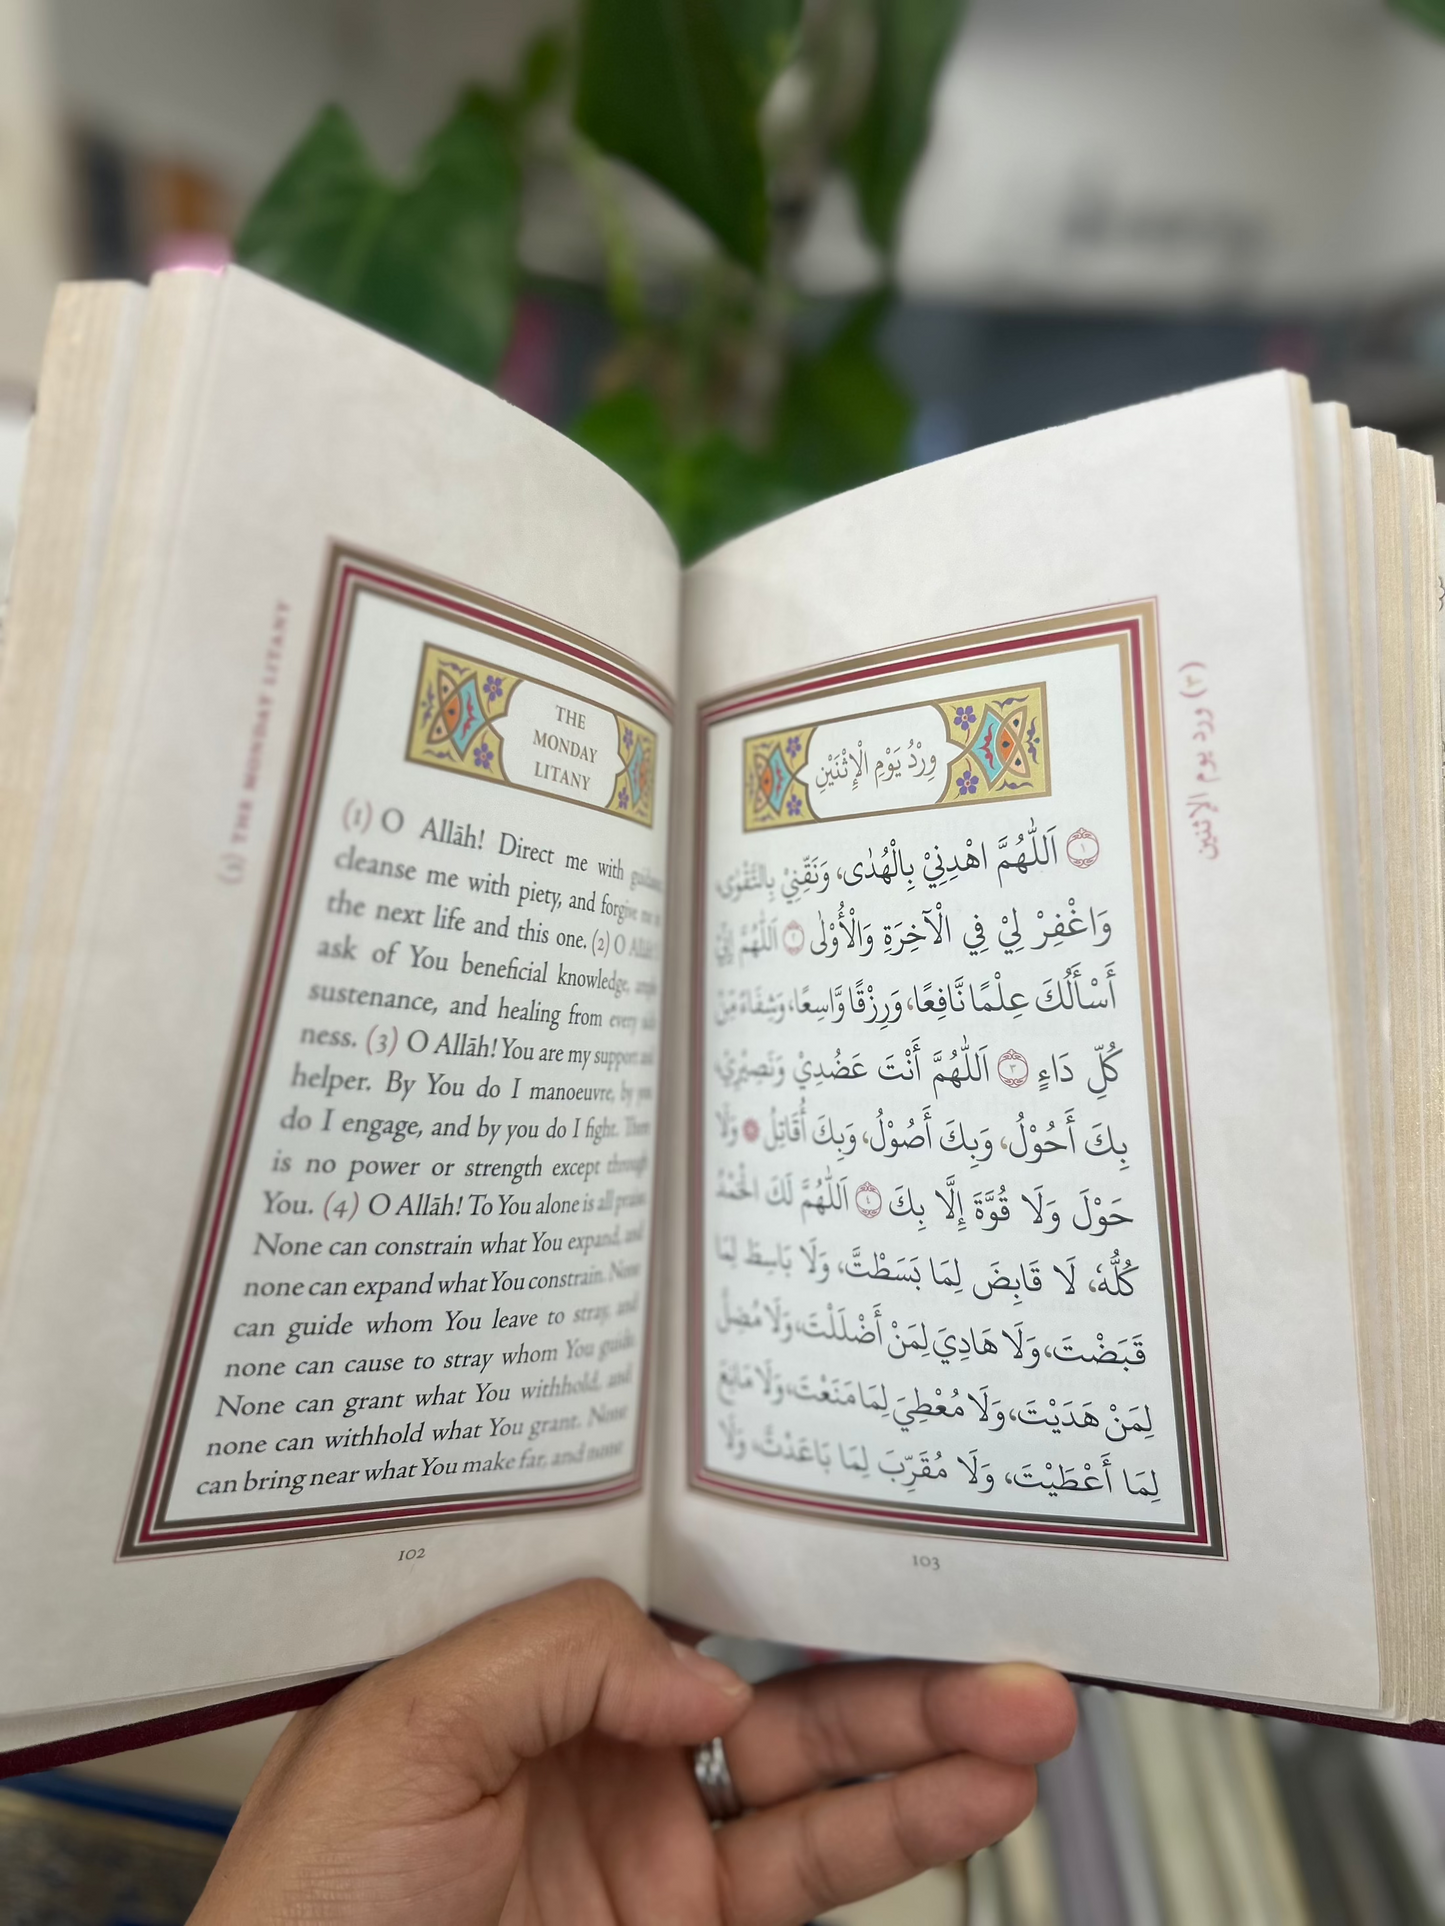 THE
MONDAY
LITANY
(1) O Allāh! Direct me with
cleanse me with piety, and forgive me
the next life and this one. (2) O Allāh!
ask of You beneficial knowledge,
sustenance, and healing from every
ness. (3) O Allāh! You are my support and
helper. By You do I manoeuvre, by you
do I engage, and by you do I fight. There
is no power or strength except through
You. (4) O Allāh! To You alone is all praise
None can constrain what You expand, and
none can expand what You constrain. None
can guide whom You leave to stray, and
none can cause to stray whom You guide.
None can grant what You withhold, and
none can withhold what You grant. None
can bring near what You make far, and none
102
THE MONDAY LITANY
وِرْدُ يَوْمِ الْإِثْنَيْنِ
١ اَللّٰهُمَّ اهْدِنِيْ بِالْهُدٰى، وَنَقِّنِيْ بِالتَّقْوٰى،
وَاغْفِرْ لِيْ فِي الْآخِرَةِ وَالْأُوْلٰى ٢ اَللّٰهُمَّ إِنِّيْ
أَسْأَلُكَ عِلْمًا نَّافِعًا، وَرِزْقًا وَّاسِعًا، وَشِفَاءً مِّنْ
كُلِّ دَاءٍ ٣ اَللّٰهُمَّ أَنْتَ عَضُدِيْ وَنَصِيْرِيْ،
بِكَ أَحُوْلُ، وَبِكَ أَصُوْلُ، وَبِكَ أُقَاتِلُ وَلَا
حَوْلَ وَلَا قُوَّةَ إِلَّا بِكَ ٤ اَللّٰهُمَّ لَكَ الْحَمْدُ
كُلُّهُ، لَا قَابِضَ لِمَا بَسَطْتَّ، وَلَا بَاسِطَ لِمَا
قَبَضْتَ، وَلَا هَادِيَ لِمَنْ أَضْلَلْتَ، وَلَا مُضِلَّ
لِمَنْ هَدَيْتَ، وَلَا مُعْطِيَ لِمَا مَنَعْتَ، وَلَا مَانِعَ
لِمَا أَعْطَيْتَ، وَلَا مُقَرِّبَ لِمَا بَاعَدْتَّ، وَلَا
103
(٣) ورد يوم الإثنين